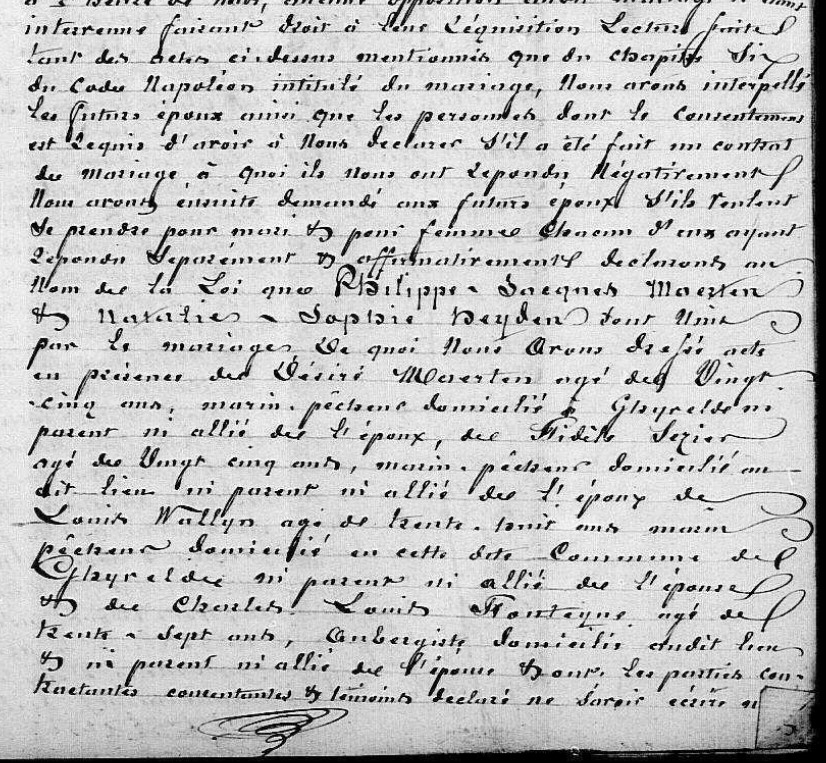 intervenue faisant droit à leur réquisition Lecture faite
tant des actes ci-dessus mentionnés que du chapitre Six
du Code Napoléon intitulé du mariage, Nous avons interpellé
les futurs époux ainsi que les personnes dont le consentement
est requis d'avoir à Nous declarer S'il a été fait un contrat
de mariage à quoi ils nous ont repondu Négativement
Nous avons ensuite demandé aux futurs époux S'ils veulent
se prendre pour mari & pour femme Chacun d'eux ayant
repondu Séparément & affirmativement declarons au
Nom de la Loi que Philippe - Jacques Maerten
& Natalie - Sophie Heyden Sont Unis
par le mariage, De quoi Nous Avons dressé acte
en présence de Désiré Maerten agé de Vingt
cinq ans, marin - pêcheur domicilié à Ghyvelde ni
parent ni allié de l'époux, de Fidèle
agé de Vingt cinq ans, marin - pêcheur domicilié au
dit lieu ni parent ni allié de l'époux de
Louis Wallyn agé de trente - huit ans marin
pêcheur domicilié en cette dite Commune de
Ghyvelde ni parent ni allié de l'épouse
& de Charles - Louis Fonteyne agé de
trente - Sept ans, Aubergiste domicilié audit lieu
& ni parent ni allié de l'épouse & ont les parties con-
tractantes consentantes & témoins declaré ne Savoir écrire